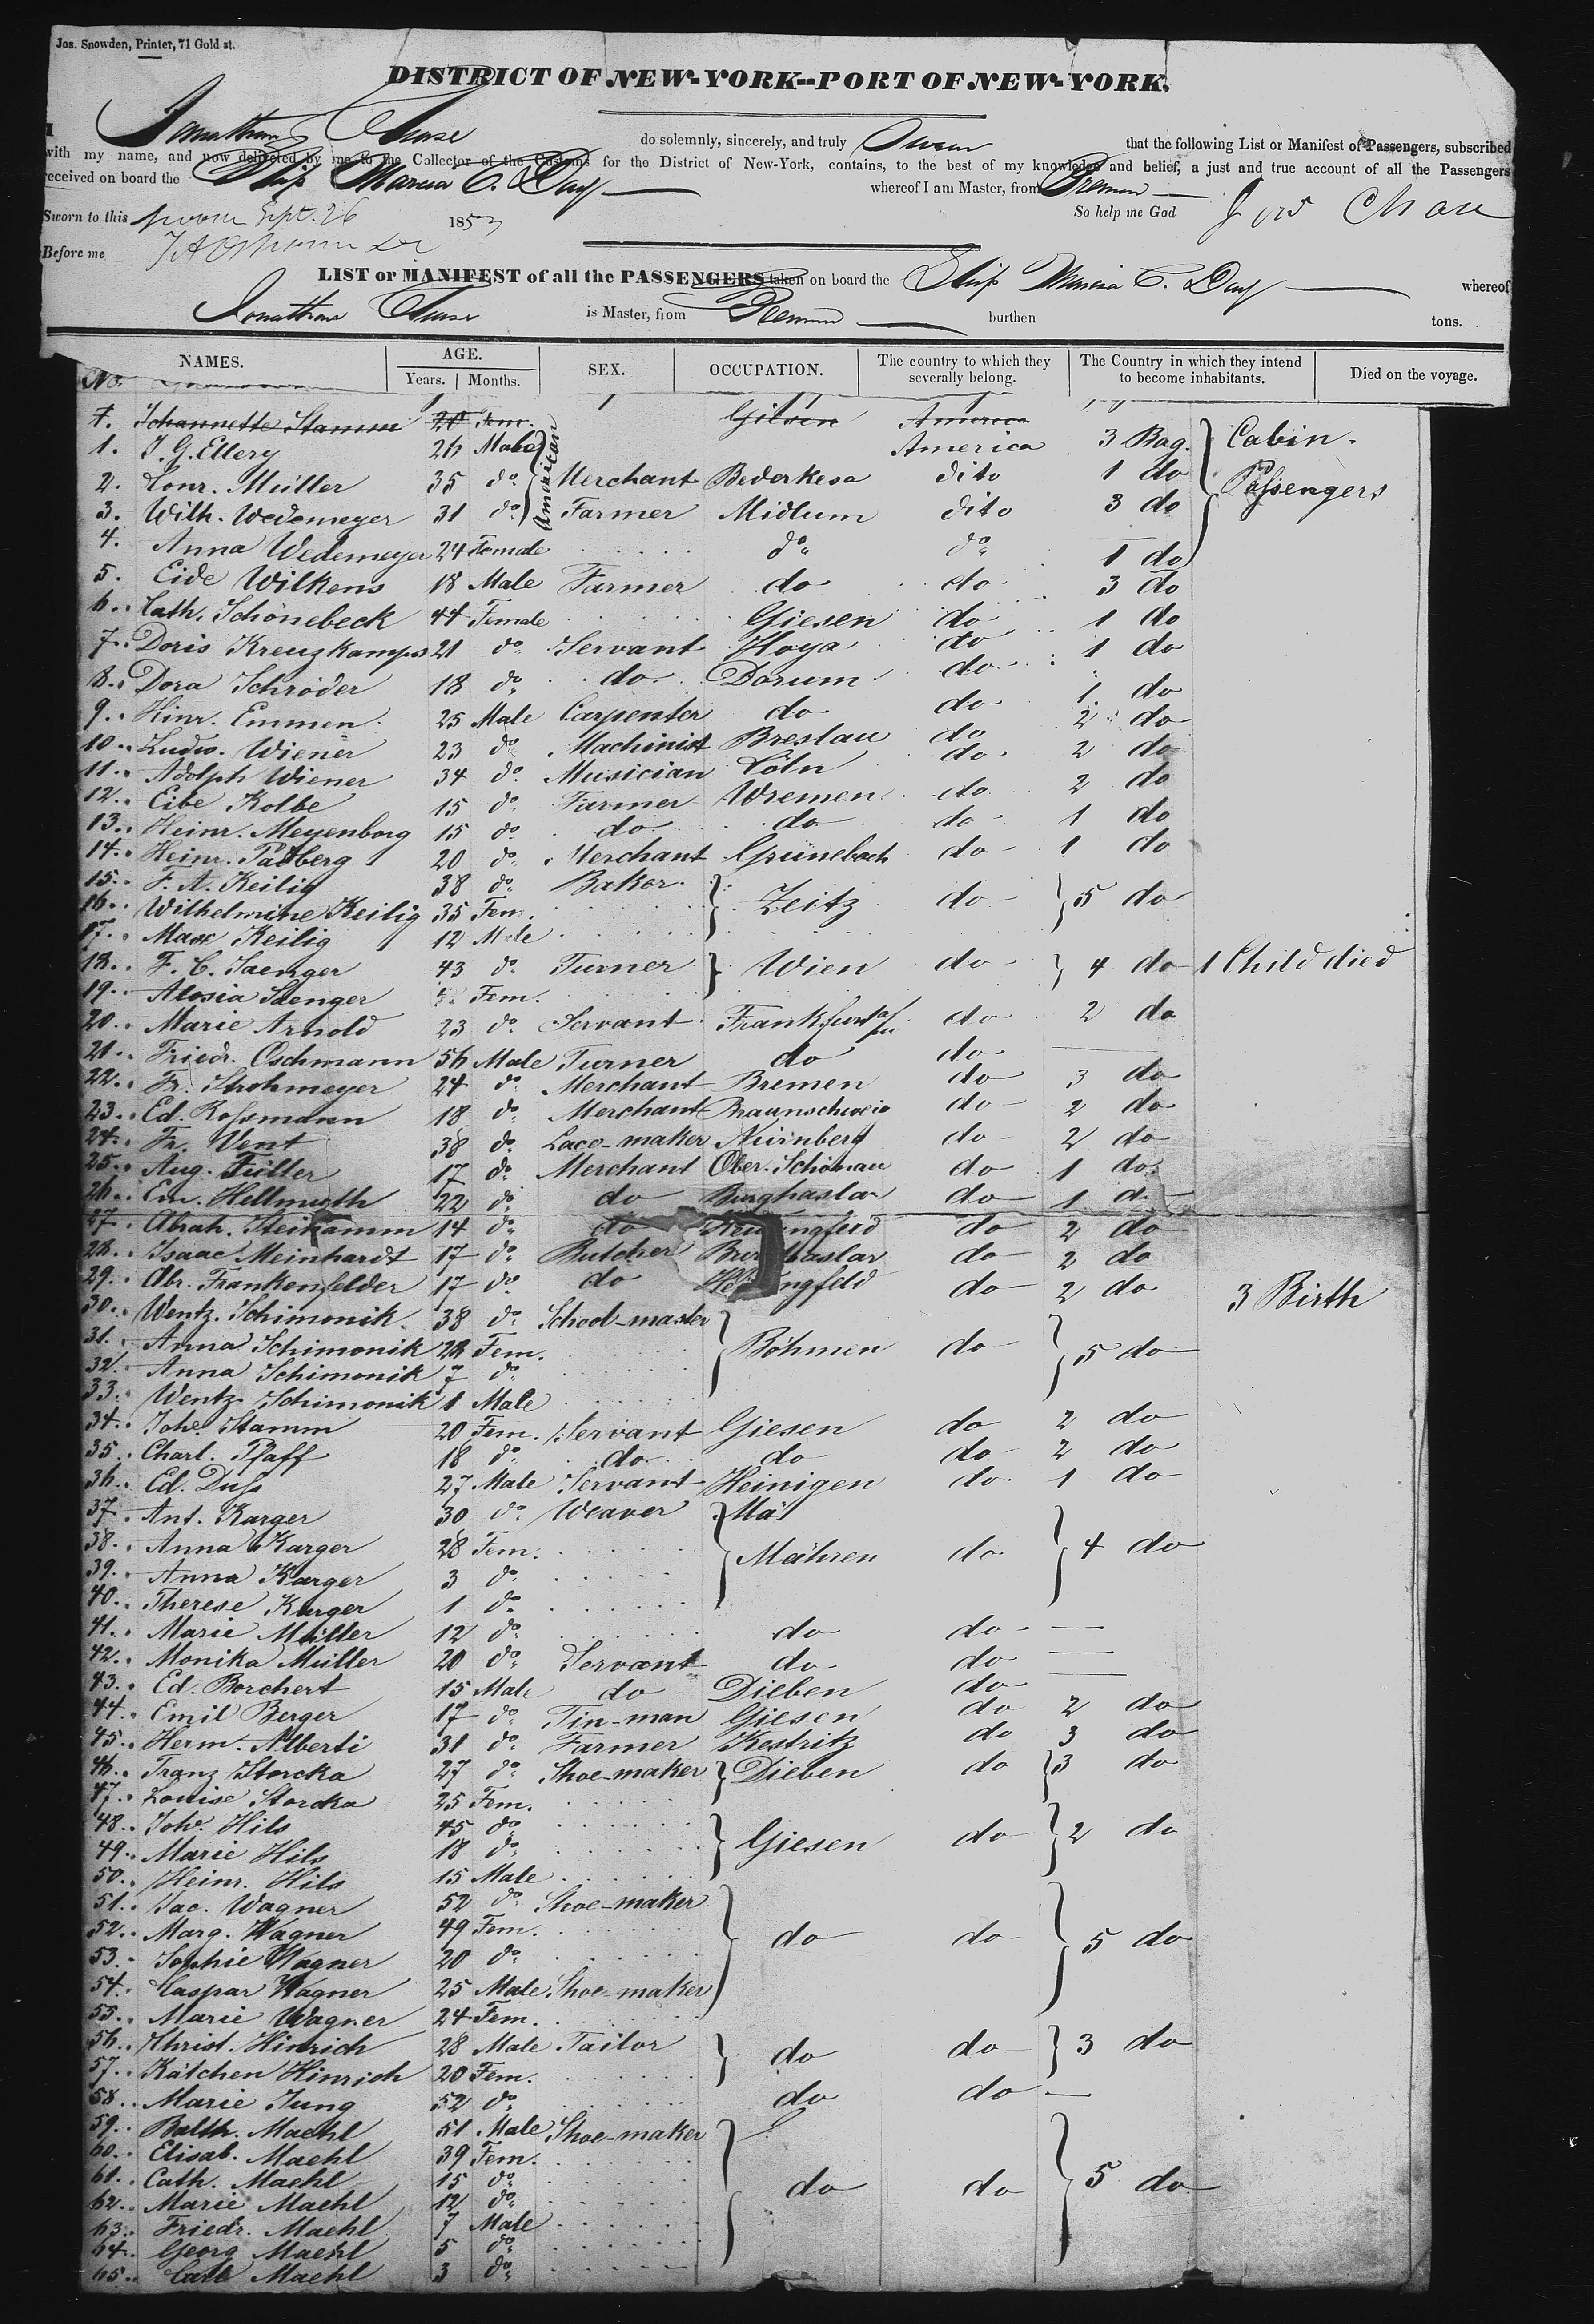 Jos. Snowden, Printer, 71 Gold st.
DISTRICT OF NEW-YORK--PORT OF NEW-YORK.
I Jonathan Chase do solemnly, sincerely, and truly Swear that the following List or Manifest of Passengers, subscribed
with my name, and now delivered by me to the Collector of the Customs for the District of New-York, contains, to the best of my knowledge and belief, a just and true account of all the Passengers
received on board the Ship Marcia C. Day whereof I am Master, from Bremen
Sworn to this Sept. 26 1853 So help me God Chase
Before me
LIST or MANIFEST of all the PASSENGERS taken on board the Ship Marcia C. Day whereof
Jonathan Chase is Master, from Bremen burthen tons.
NAMES. AGE. SEX. OCCUPATION. The country to which they severally belong. The Country in which they intend to become inhabitants. Died on the voyage.
No. Years. Months.
1. Johannette Stamm 20 Fem. Giesen America
1. J. G. Ellery 26 Male American America 3 Bag. Cabin
2. Conr. Müller 35 do Merchant Bederkesa dito 1 do Passengers
3. Wilh. Wedemeyer 31 do Farmer Midlum dito 3 do
4. Anna Wedemeyer 24 Female do do 1 do
5. Eide Wilkens 18 Male Farmer do do 3 do
6. Cath. Schönebeck 44 Female Giesen do 1 do
7. Doris Kreuzkamps 21 do Servant Hoya do 1 do
8. Dora Schröder 18 do do Dorum do 1 do
9. Hinr. Emmen 25 Male Carpenter do do 2 do
10. Ludw. Wiener 23 do Machinist Breslau do 2 do
11. Adolph Wiener 34 do Musician Cöln do 2 do
12. Eibe Kolbe 15 do Farmer Wremen do
13. Heinr. Meyenborg 15 do do do do 1 do
14. Heinr. Padberg 20 do Merchant Grünebach do 1 do
15. F. A. Keilig 38 do Baker Zeitz do 5 do
16. Wilhelmine Keilig 35 Fem.
17. Max Keilig 12 Male
18. F. C. Saenger 43 do Turner Wien do 4 do 1 Child died
19. Alosia Saenger Fem.
20. Marie Arnold 23 do Servant Frankfurt do 2 do
21. Friedr. Oschmann 56 Male Turner do do
22. Fr. Strohmeyer 24 do Merchant Bremen do 3 do
23. Ed. Kossmann 18 do Merchant Braunschweig do 2 do
24. Fr. Vent 38 do Lace-maker Nürnberg do 2 do
25. Aug. Füller 17 do Merchant Ober-Schönau do 1 do
26. Em. Hellmuth 22 do do Burghaslar do 1 do
27. Abrah. Steinkamm 14 do do do 2 do
28. Isaac Meinhardt 17 do Butcher Burghaslar do 2 do
29. Abr. Frankenfelder 17 do do do 2 do 3 Birth
30. Wentz. Schimonik 38 do School-master Böhmen do 5 do
31. Anna Schimonik 28 Fem.
32. Anna Schimonik 7 do
33. Wentz. Schimonik 1 Male
34. Johe. Stamm 20 Fem. Servant Giesen do 2 do
35. Charl. Pfaff 18 do do do do 2 do
36. Ed. Duss 27 Male Servant Heinigen do 1 do
37. Ant. Karger 30 do Weaver Mä
38. Anna Karger 28 Fem. Mähren do 4 do
39. Anna Karger 3 do
40. Therese Karger 1 do
41. Marie Müller 12 do do do
42. Monika Müller 20 do Servant do do
43. Ed. Borchert 15 Male do Dieben do
44. Emil Berger 17 do Tin-man Giesen do 2 do
45. Herm. Alberti 31 do Farmer Kestritz do 3 do
46. Franz Storcka 27 do Shoe-maker Dieben do 3 do
47. Louise Storcka 25 Fem.
48. Johe. Hils 45 do Giesen do 2 do
49. Marie Hils 18 do
50. Heinr. Hils 15 Male
51. Jac. Wagner 52 do Shoe-maker do do 5 do
52. Marg. Wagner 49 Fem.
53. Sophie Wagner 20 do
54. Caspar Wagner 25 Male Shoe-maker
55. Marie Wagner 24 Fem.
56. Christ. Hinrich 28 Male Tailor do do 3 do
57. Kätchen Hinrich 20 Fem.
58. Marie Jung 52 do do do
59. Balth. Maehl 51 Male Shoe-maker do do 5 do
60. Elisab. Maehl 39 Fem.
61. Cath. Maehl 15 do
62. Marie Maehl 12 do
63. Friedr. Maehl 7 Male
64. Georg Maehl 5 do
65. Carl Maehl 3 do